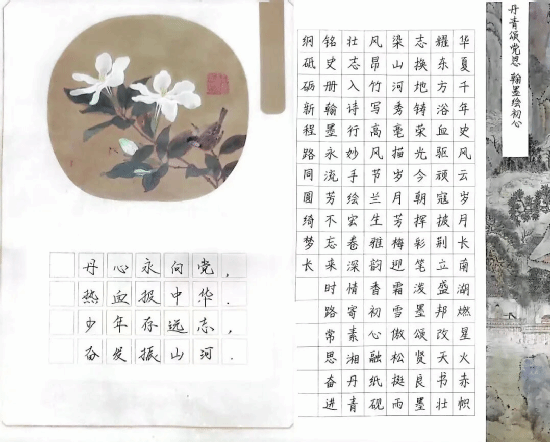 丹青颂党恩 翰墨绘初心
华夏千年史风云岁月长南湖燃星火赤帜
耀东方浴血驱顽寇披荆立盛邦改天书壮
志换地铸荣光今朝挥彩笔泼墨颂贤良墨
染山河秀毫描岁月芳梅迎霜雪傲松挺雨
风昂竹写高风节兰生雅韵香初心融纸砚
壮志入诗行妙手绘宏卷深情寄素湘丹青
铭史册翰墨永流芳不忘来时路常思奋进
纲砥砺新程路同圆绮梦长
丹心永向党，
热血报中华．
少年存远志，
奋发振山河．